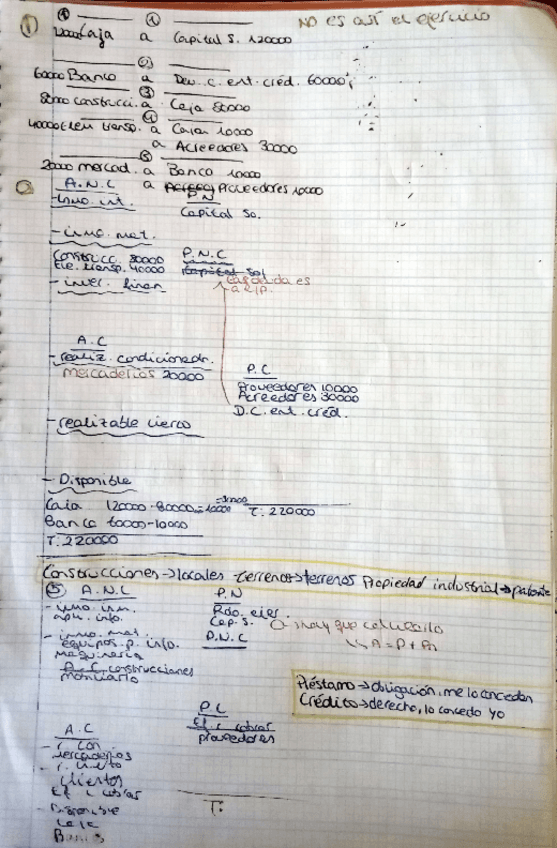 ① ④ ①
No es así el ejercicio
120000 Caja a Capital S. 120000
②
60000 Banco a Deu. c. ent. créd. 60000
③
80000 construcci. a Caja 80000
④
40000 Elem transp. a Caja 10000
a Acreedores 30000
⑤
20000 mercad. a Banco 10000
a Proveedores 10000
A.N.C
P N
- Inmo. int.
Capital So.
- inmo. mat.
Construcc. 80000
P.N.C
Ele. transp. 40000
Capital Sol
- inver. finan
a L/P.
A.C
- realiz. condicionado.
mercaderias 20000
P.C
Proveedores 10000
Acreedores 30000
D.C. ent. créd.
- realizable cierto
- Disponible
Caja 120000-80000-10000
=30000
T. 220000
Banco 60000-10000
T. 220000
Construcciones → locales Terrenos → terrenos Propiedad industrial → patente
⑤ A.N.C
P.N
- inmo. inm.
Rdo. ejer.
apli. info.
Cap. S.
hay que calcularlo
- inmo. mat.
P.N.C
A = P + Pn
equipos. p. info.
maquinaria
A.C. construcciones
mobiliario
Préstamo → obligación, me lo conceden
Crédito → derecho, lo concedo yo
P.C
Ef. c. cobrar
proveedores
A.C
- r. con
mercaderias
- r. cierto
clientes
Ef. c. cobrar
- Disponible
Caja
Banco
T: